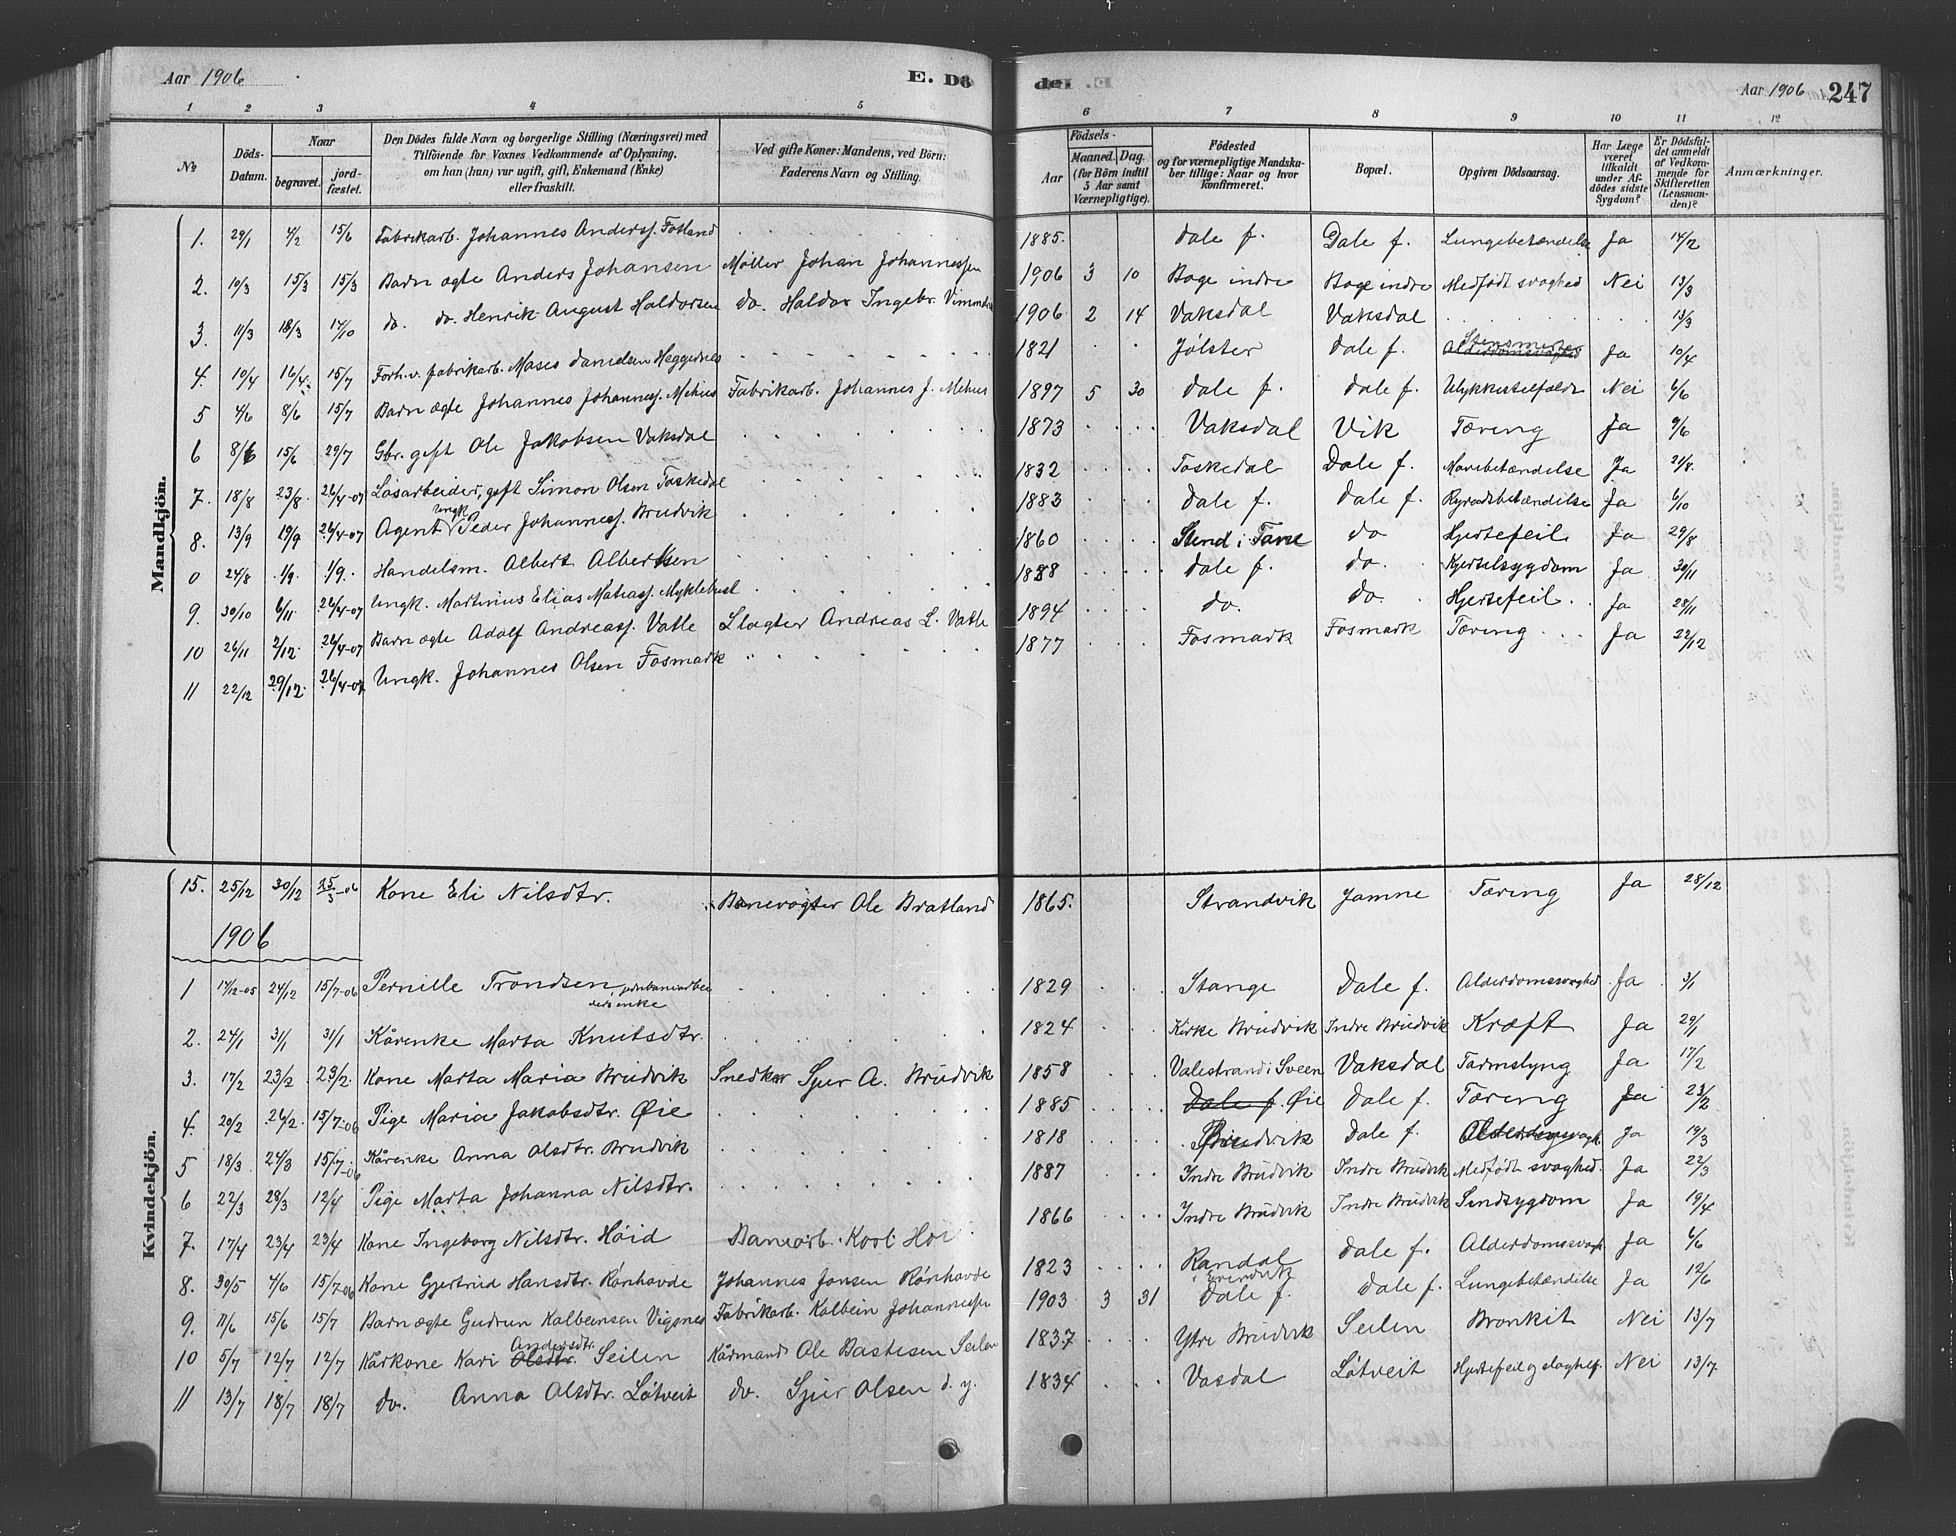 Aar 1906
E. Dö
de.
Aar 1906
247
1 2 3 4 5 6 7 8 9 10 11 12
No
Döds-Datum.
Naar
begravet.
jordfæstet.
Den Dödes fulde Navn og borgerlige Stilling (Næringsvei) med Tilföiende for Voxnes Vedkommende af Oplysning, om han (hun) var ugift, gift, Enkemand (Enke) eller fraskilt.
Ved gifte Koner: Mandens, ved Börn: Faderens Navn og Stilling.
Födsels-
Aar
Maaned.
Dag.
(for Börn indtil 5 Aar samt Værnepligtige).
Födested
og for værnepligtige Mandskaber tillige: Naar og hvor konfirmeret.
Bopæl.
Opgiven Dödsaarsag.
Har Læge været tilkaldt under Afdödes sidste Sygdom?
Er Dödsfaldet anmeldt af Vedkommende for Skifteretten (Lensmanden)?
Anmærkninger.
Mandkjön.
1. 29/1 4/2 15/6 Fabrikarb. Johannes Anderss. Fotland 1885. Dale f. Dale f. Lungebetændelse Ja 14/2
2. 10/3 15/3 15/3 Barn ægte Anders Johansen Møller Johan Johannessen 1906 3 10 Boge indre Boge indre Medfødt svaghed Nei 13/3
3. 11/3 18/3 14/10 do. do. Henrik August Haldorsen do. Haldor Ingebr. 1906 2 14 Vaksdal Vaksdal 13/3
4. 10/4 16/4 15/7 Forh.v. fabrikarb. Moses Danielsen Heggednes 1821 Jølster Dale f. Alderdomssvaghed Ja 10/4
5 4/6 8/6 15/7 Barn ægte Johannes Johanness. Mehus Fabrikarb. Johannes J. Mehus 1897 5 30 Dale f. Dale f. Ulykkestilfælde Nei 6/6
6 8/6 15/6 29/7 Gbr. gift Ole Jakobsen Vaksdal 1873 Vaksdal Vik Tæring Ja 9/6
7. 18/8 23/8. 26/4-07 Løsarbeider, gift Simon Olsen Toskedal 1832 Toskedal Dale f. Mavebetændelse Ja 21/8.
8. 13/9 19/9 26/4-07 Agent Ungk. Peder Johanness. Brudvik 1883 Dale f. Dale f. Rygradsbetændelse Ja 6/10
0 24/8 1/9. 1/9. Handelsm. Albert Albertsen 1860 Stend i Fane do Hjertefeil Ja 29/8
9. 30/10 6/11. 26/4-07 Ungk. Martinius Elias Matiass. Myklebust 1888 Dale f. do. Kjertelsygdom Ja 30/11
10 26/11 2/12. 26/4-07 Barn ægte Adolf Andreass. Vatle Slagter Andreas L. Vatle 1894 do. do. Hjertefeil. Ja 28/11
11 22/12 29/12. 26/4-07 Ungk. Johannes Olsen Fosmark 1877 Fosmark Fosmark Tæring Ja 22/12
Kvindekjön.
15. 25/12 30/12 25/3-06 Kone Eli Nilsdtr. Banevogter Ole Bratland 1865. Strandvik Jamne Tæring Ja 28/12
1906
1 17/12-05 24/12 15/7-06 Pernille Trondsen enke 1829 Stange Dale f. Alderdomssvaghed Ja 3/1
2. 24/1 31/1 31/1 Kårenke Marta Knutsdtr. 1824 Kirke Brudvik Indre Brudvik Kræft Ja 29/1
3. 17/2 23/2 23/2. Kone Marta Maria Brudvik Snedker Sjur A. Brudvik 1858 Valestrand i Sveen Vaksdal Tarmslyng Ja 17/2
4. 20/2 26/2. 15/7-06 Pige Maria Jakobsdtr. Øie 1885 Dale f. Øie Dale f. Tæring Ja 23/2
5 18/3 24/3 15/7-06 Kårenke Anna Olsdtr. Brudvik 1818 Brudvik Dale f. Alderdomssvagh. Ja 19/3
6 22/3 28/3 12/4 Pige Marta Johanna Nilsdtr. 1887 Indre Brudvik Indre Brudvik Medfødt svaghed. Ja 22/3
7. 17/4 23/4 23/4 Kone Ingeborg Nilsdtr. Høid Banearb. Karl Høi 1866 Indre Brudvik Indre Brudvik Sindsygdom Ja 19/4
8. 30/5 4/6 15/7-06 Kone Gjertrud Hansdtr. Rønhovde Johannes Jonsen Rønhovde 1823 Randal i Evindvik Dale f. Alderdomssvagh Ja 6/6
9. 11/6 15/6 15/7 Barn ægte Gudrun Kolbeensen Vigsnes Fabrikarb. Kolbein Johannessen 1903 3 31 Dale f. Dale f. Lungebetændelse Ja 12/6
10 5/7 12/7 12/7 Kårkone Kari Olsdtr. Andersdtr. Seilen Kårmand Ole Bastesen Seilen 1837 Ytre Brudvik Seilen Bronkit Nei 13/7
11 13/7 18/7 18/7 do. Anna Olsdtr. Løtveit do. Sjur Olsen d. y. 1834 Vasdal Løtveit Hjertefeil og slagtilf. Nei 13/7